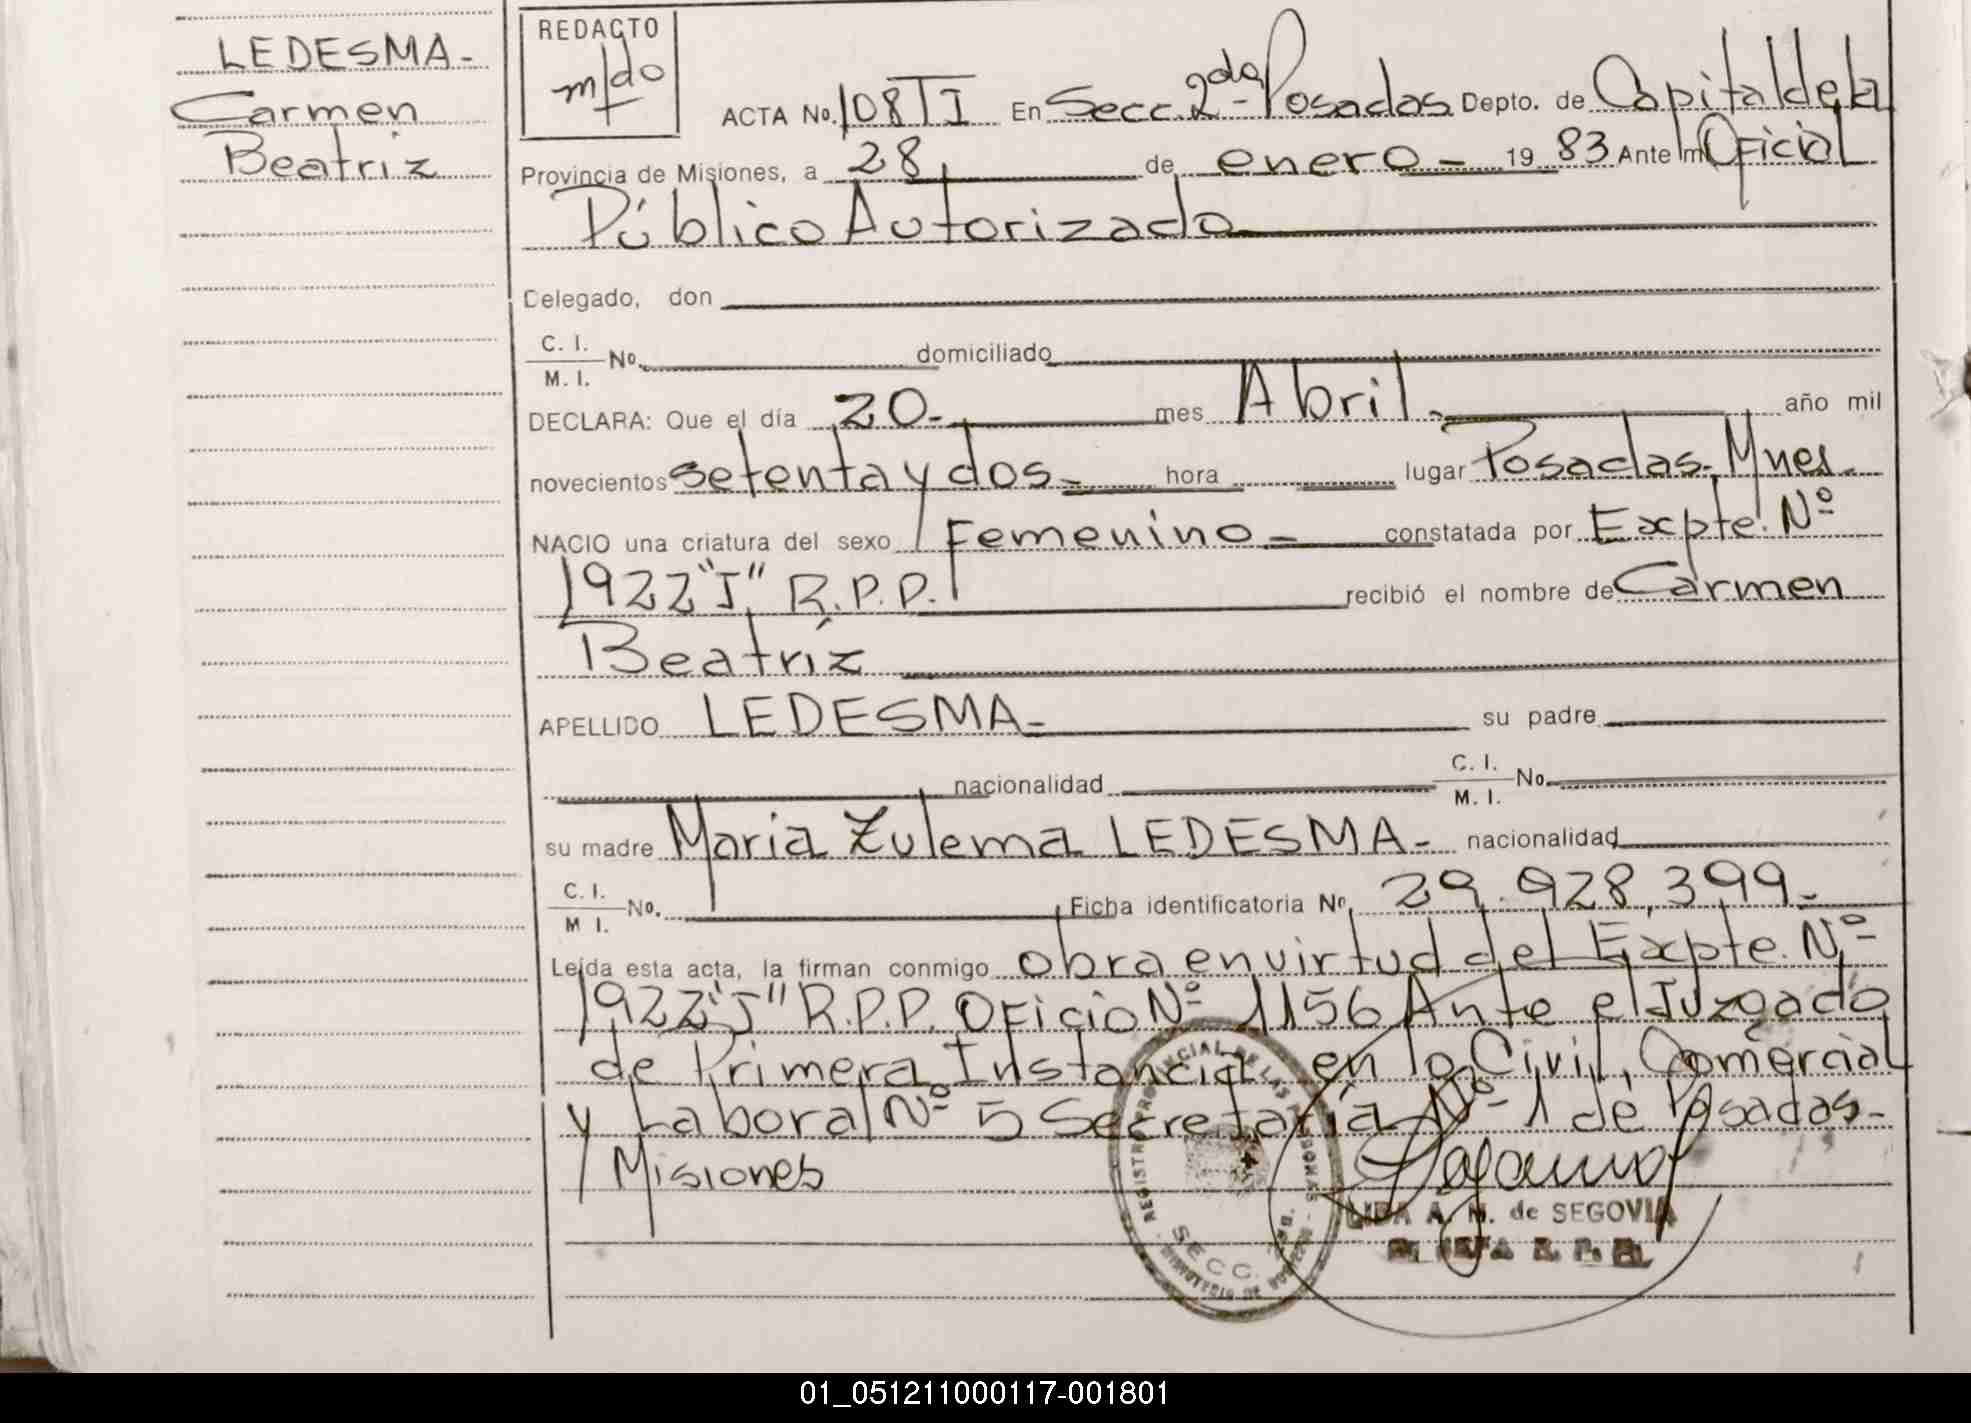 LEDESMA-
Carmen
Beatriz
REDACTO
m/do
ACTA No. 108 T I En Secc. 2da- Posadas Depto. de Capital de la
Provincia de Misiones, a 28 de enero - 19 83 Ante mí Oficial
Público Autorizado
Delegado, don
C. I.
M. I. No. domiciliado
DECLARA: Que el día 20- mes Abril. año mil
novecientos setenta y dos- hora lugar Posadas. Mnes.
NACIO una criatura del sexo Femenino- constatada por Expte. Nº
1922 "J" R.P.P. recibió el nombre de Carmen
Beatríz
APELLIDO LEDESMA- su padre
nacionalidad C. I.
M. I. No.
su madre Maria Zulema LEDESMA- nacionalidad
C. I.
M I. No. Ficha identificatoria Nº 29.928,399-
Leída esta acta, la firman conmigo obra en virtud del Expte. Nº
1922 "J" R.P.P. Oficio Nº 1156 Ante el Juzgado
de Primera Instancia en lo Civil, Comercial
y Laboral Nº 5 Secretaría Nº 1 de Posadas-
Misiones
REGISTRO PROVINCIAL DE LAS PERSONAS
SECC.
LIDA A. N. de SEGOVIA
01_051211000117-001801